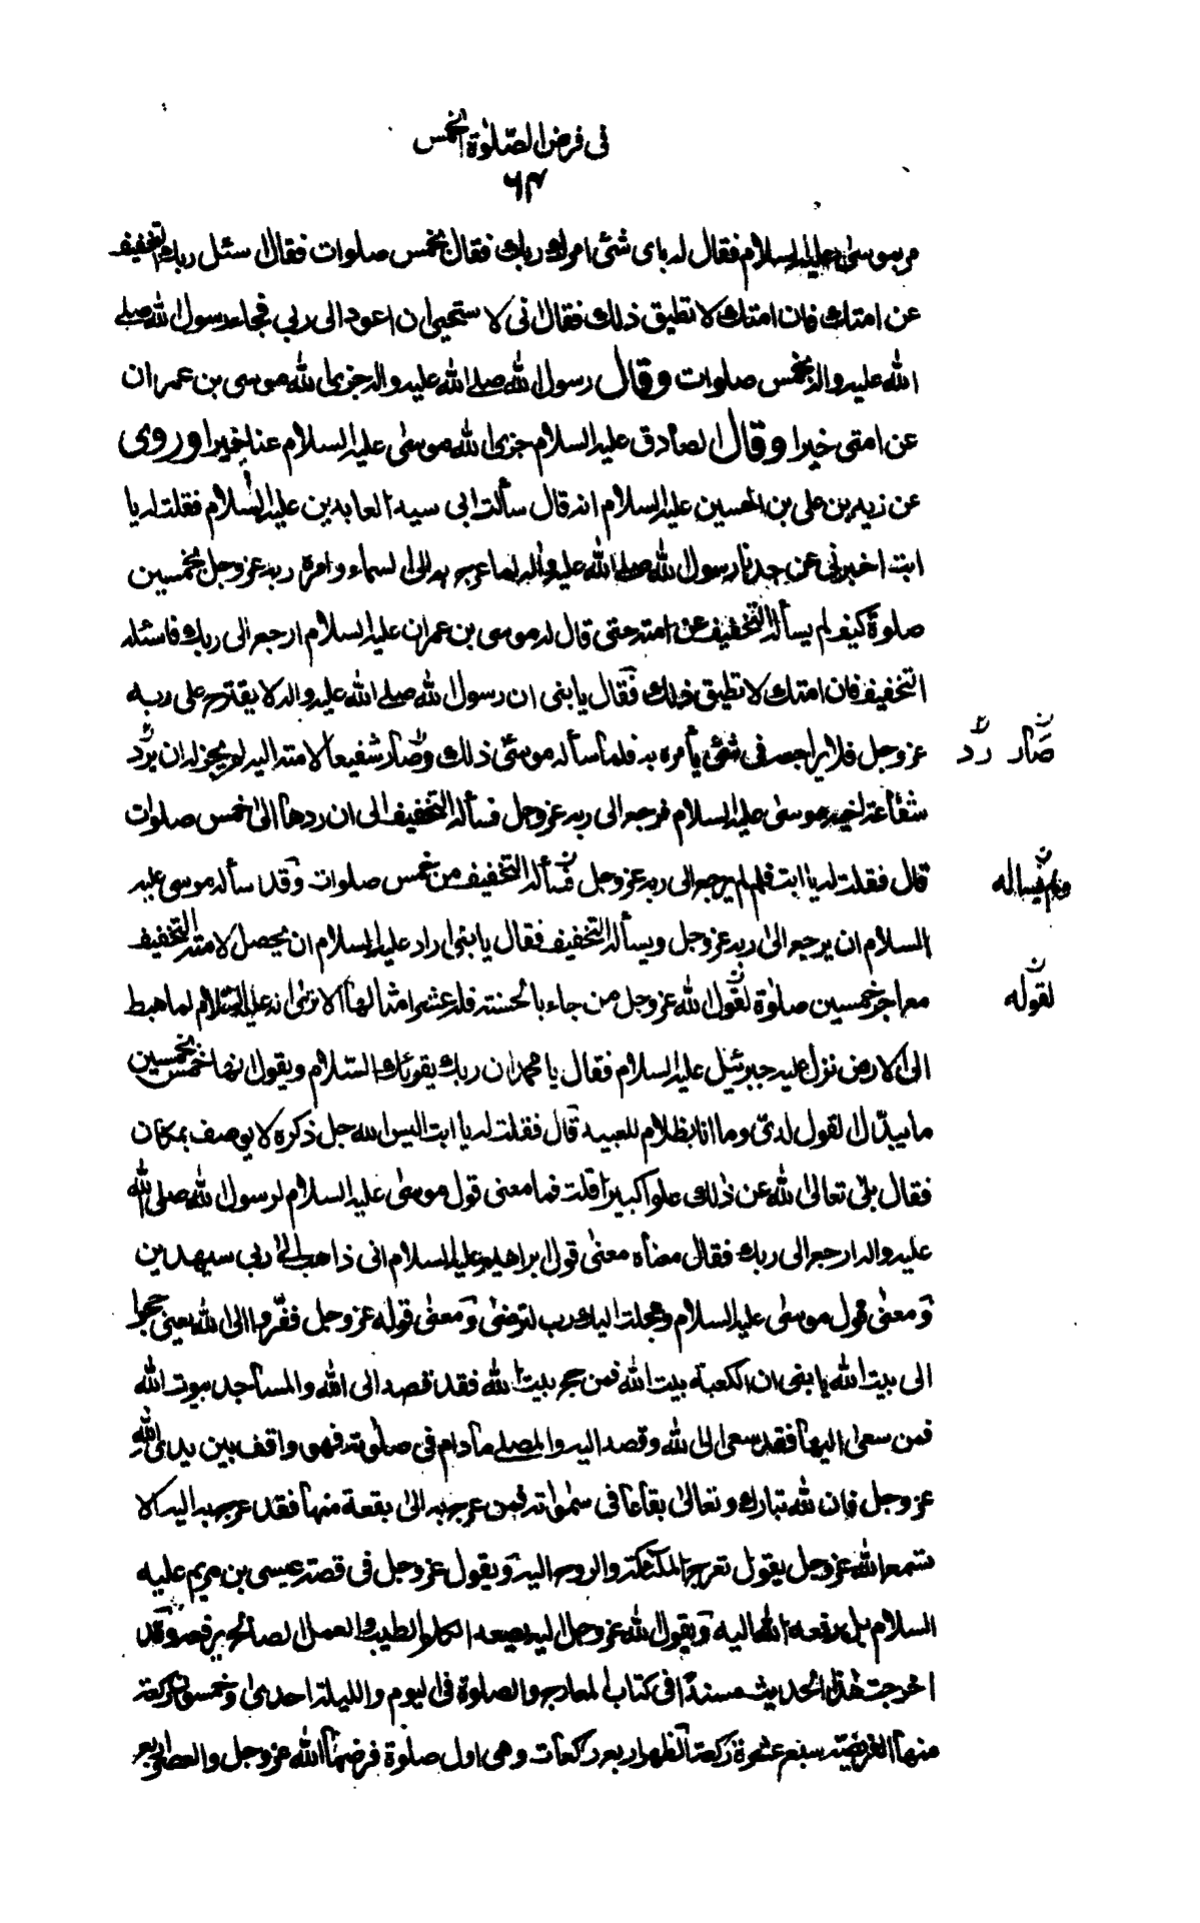 في فرض الصّلوٰة الخمس
٦٤
مر بموسىٰ عليه السلام فقال له باى شئ امرك ربك فقال بخمس صلوات فقال اسئل ربك التخفيف
عن امتك فان امتك لا تطيق ذلك فقال انى لا ستحيى ان اعود الى ربى فجاء رسول الله صلے
الله عليه واله بخمس صلوات وقال رسول الله صلے الله عليه واله جزى الله موسى بن عمران
عن امتى خيرا وقال الصادق عليه السلام جزى الله موسىٰ عليه السلام عنا خيرا وروى
عن زيد بن على بن الحسين عليه السلام انه قال سألت ابى سيد العابدين عليه السلام فقلت له يا
ابت اخبرنى عن جدنا رسول الله صلے الله عليه واله لما عرج به الى السماء وامره ربه عزوجل بخمسين
صلوة كيف لم يسأله التخفيف عن امته حتى قال له موسى بن عمران عليه السلام ارجع الى ربك فاسئله
التخفيف فان امتك لا تطيق ذلك فقال يا بنى ان رسول الله صلے الله عليه واله لا يقترح على ربه
عزوجل فلا يراجعه فى شئ يأمره به فلما سأله موسىٰ ذلك وصار شفيعا لامته اليه لم يجز له ان يردّ
صار ردّ
شفاعة اخيه موسىٰ عليه السلام فرجع الى ربه عزوجل فسأله التخفيف الى ان ردها الىٰ خمس صلوات
قال فقلت له يا ابت فلم لم يرجع الى ربه عزوجل فسأله التخفيف من خمس صلوات وقد سأله موسى عليه
ولم يساله
السلام ان يرجع الىٰ ربه عزوجل ويسأله التخفيف فقال يا بنى اراد عليه السلام ان يحصل لامته التخفيف
مع اجر خمسين صلوٰة لقول الله عزوجل من جاء بالحسنة فله عشر امثالها الا ترىٰ انه عليه السّلام لما هبط
لقوله
الى الارض نزل عليه جبرئيل عليه السلام فقال يا محمد ان ربك يقرئك السّلام ويقول انها خمس بخمسين
ما يبدّل القول لدىّ وما انا بظلام للعبيد قال فقلت له يا ابت اليس الله جل ذكره لا يوصف بمكان
فقال بلىٰ تعالىٰ الله عن ذلك علوا كبيرا قلت فما معنى قول موسىٰ عليه السلام لرسول الله صلى الله
عليه واله ارجع الى ربك فقال معناه معنىٰ قول ابراهيم عليه السلام انى ذاهب الىٰ ربى سيهدين
ومعنىٰ قول موسىٰ عليه السلام وعجلت اليك رب لترضىٰ ومعنىٰ قوله عزوجل ففرّوا الى الله يعنى حجوا
الى بيت الله يا بنى ان الكعبة بيت الله فمن حج بيت الله فقد قصد الى الله والمساجد بيوت الله
فمن سعىٰ اليها فقد سعى الى الله وقصد اليه والمصلے مادام فى صلوٰته فهو واقف بين يدى الله
عزوجل فان لله تبارك وتعالىٰ بقاعا فى سمٰواته فمن عرج به الىٰ بقعة منها فقد عرج به اليه الا
تسمع الله عزوجل يقول تعرج الملائكة والروح اليه ويقول عزوجل فى قصة عيسى بن مريم عليه
السلام بل رفعه الله اليه ويقول الله عزوجل اليه يصعد الكلم الطيب والعمل الصالح يرفعه وقد
اخرجت هذا الحديث مسندا فى كتاب المعارج والصلوة فى اليوم والليلة احدى وخمسون ركعة
منها الفريضة سبع عشرة ركعة الظهر اربع ركعات وهى اول صلوٰة فرضها الله عزوجل والعصر اربع